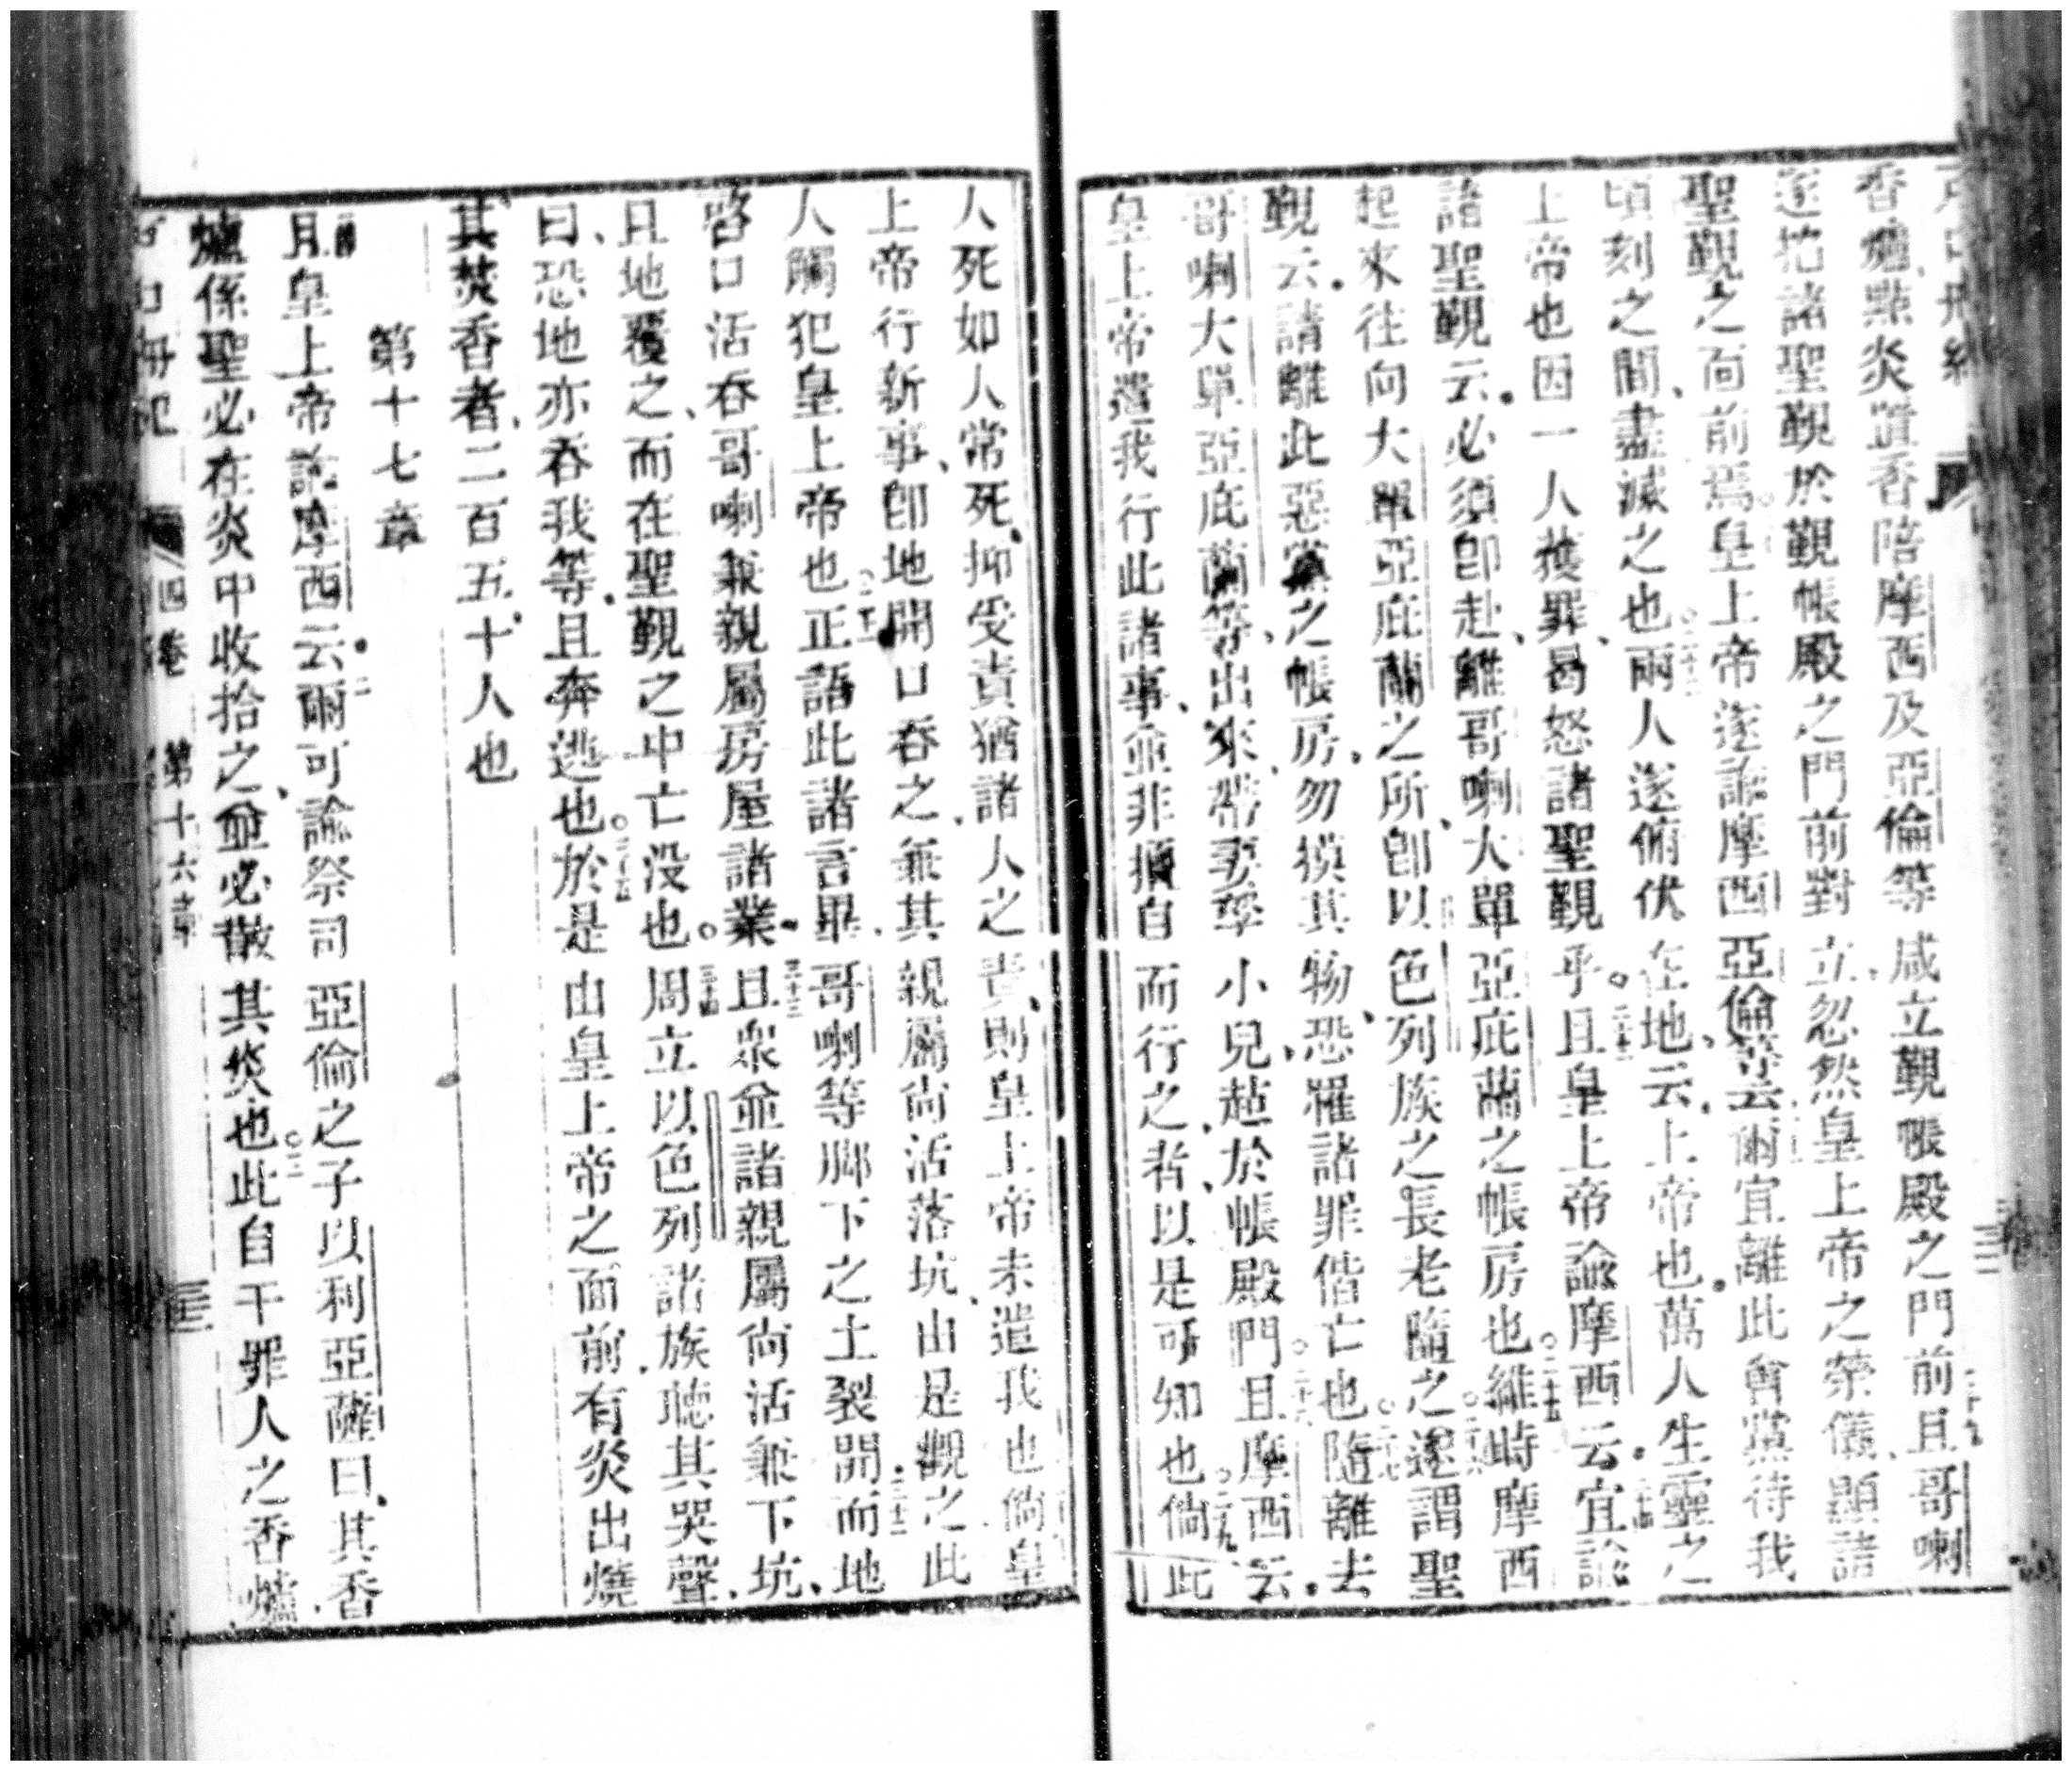 香爐、點炎置香陪摩西及亞倫等咸立覲帳殿之門前且哥喇
遂招諸聖覲於覲帳殿之門前對立、忽然皇上帝之榮儀、顯諸
聖覲之面前焉。皇上帝遂諭摩西亞倫等云爾宜離此會黨待我
頃刻之間、盡滅之也。兩人遂俯伏在地、云、上帝也、萬人生靈之
上帝也因一人獲罪、曷怒諸聖覲乎。且皇上帝諭摩西云。宜諭
諸聖覲云。必須即赴、離哥喇大單亞庇蘭之帳房也。維時摩西
起來往向大單亞庇蘭之所、即以色列族之長老隨之。遂謂聖
覲云。請離此惡黨之帳房。勿摸其物、恐罹諸罪偕亡也。隨離去
哥喇大單亞庇蘭等、出來、帶妻孥小兒、趍於帳殿門。且摩西云。
皇上帝遣我行此諸事、並非擅自而行之者、以是可知也。二十九倘此
人死如人常死、抑受責猶諸人之責、則皇上帝未遣我也倘皇
上帝行新事、即地開口吞之、兼其親屬尚活落坑、由是觀之此
人觸犯皇上帝也。正語此諸言畢、哥喇等腳下之土裂開。而地
啓口活吞哥喇兼親屬房屋諸業。三十三且眾並諸親屬尚活兼下坑、
且地覆之、而在聖覲之中亡没也。三十四周立以色列諸族聽其哭聲、
曰、恐地亦吞我等。且奔逃也。三十五於是由皇上帝之面前、有炎出燒
其焚香者、二百五十人也
第十七章
且皇上帝諭摩西云。二爾可諭祭司亞倫之子以利亞薩曰、其香
爐係聖必在炎中收拾之、並必散其炎也。三此自干罪人之香爐、
四卷 第十六章